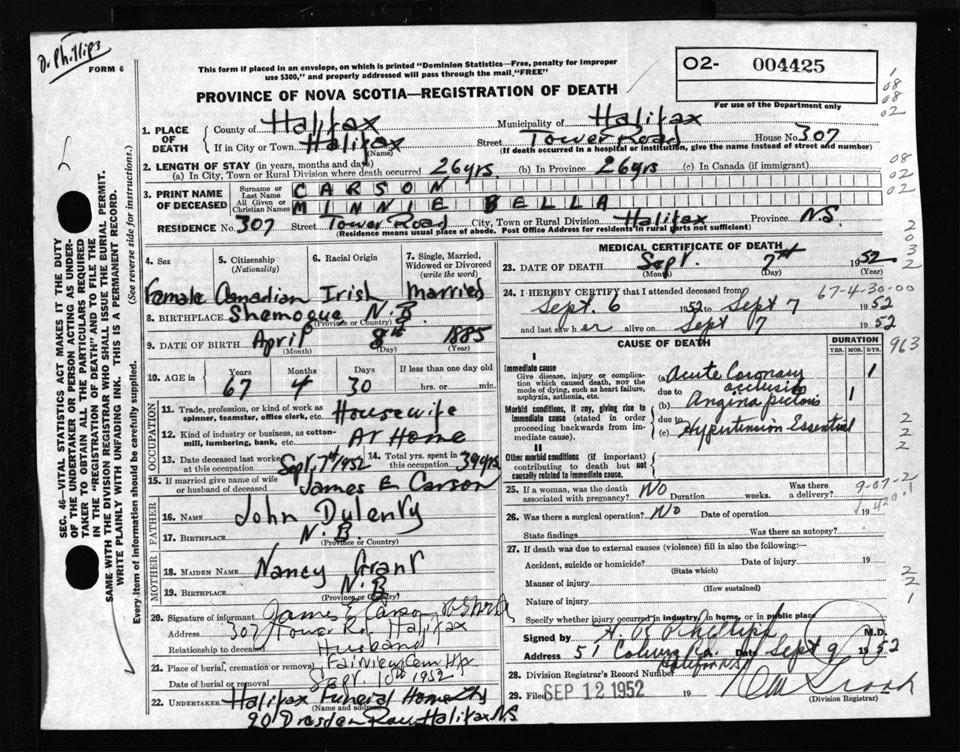 D. Phillips
FORM 6
This form if placed in an envelope, on which is printed "Dominion Statistics—Free, penalty for improper
use $300," and properly addressed will pass through the mail "FREE"
PROVINCE OF NOVA SCOTIA—REGISTRATION OF DEATH
02- 004425
For use of the Department only
1
08
08
02
1. PLACE OF DEATH { County of Halifax Municipality of Halifax
If in City or Town Halifax Street Tower Road House No. 307
(Name) (If death occurred in a hospital or institution, give the name instead of street and number)
2. LENGTH OF STAY (in years, months and days)
(a) In City, Town or Rural Division where death occurred 26 yrs. (b) In Province 26 yrs (c) In Canada (if immigrant)
08
02
02
3. PRINT NAME OF DECEASED { Surname or Last Name CARSON
All Given or Christian Names MINNIE BELLA
RESIDENCE No. 307 Street Tower Road City, Town or Rural Division Halifax Province N.S.
(Residence means usual place of abode. Post Office Address for residents in rural parts not sufficient)
2
0
3
2
SEC. 46—VITAL STATISTICS ACT MAKES IT THE DUTY
OF THE UNDERTAKER OR PERSON ACTING AS UNDER-
TAKER TO OBTAIN ALL THE PARTICULARS REQUIRED
IN THE "REGISTRATION OF DEATH" AND TO FILE THE
SAME WITH THE DIVISION REGISTRAR WHO SHALL ISSUE THE BURIAL PERMIT.
WRITE PLAINLY WITH UNFADING INK. THIS IS A PERMANENT RECORD.
Every item of information should be carefully supplied. (See reverse side for instructions.)
4. Sex 5. Citizenship (Nationality) 6. Racial Origin 7. Single, Married, Widowed or Divorced (write the word)
Female Canadian Irish Married
8. BIRTHPLACE Shemogue N.B.
(Province or Country)
9. DATE OF BIRTH April 8th 1885
(Month) (Day) (Year)
10. AGE in Years Months Days If less than one day old
67 4 30 hrs. or min.
OCCUPATION
11. Trade, profession, or kind of work as spinner, teamster, office clerk, etc. Housewife
12. Kind of industry or business, as cotton-mill, lumbering, bank, etc. At Home
13. Date deceased last worked at this occupation Sept 7th 1952 14. Total yrs. spent in this occupation 39 yrs
15. If married give name of wife or husband of deceased James E Carson
FATHER
16. NAME John Dulenty
17. BIRTHPLACE N.B
(Province or Country)
MOTHER
18. MAIDEN NAME Nancy Grant
19. BIRTHPLACE N.B
(Province or Country)
20. Signature of informant James E Carson
Address 307 Tower Rd Halifax
Relationship to deceased Husband
21. Place of burial, cremation or removal Fairview Cem Hfx
Date of burial or removal Sept. 10th 1952
22. UNDERTAKER Halifax Funeral Home Ltd
(Name and address)
90 Dresden Row Halifax NS
MEDICAL CERTIFICATE OF DEATH
23. DATE OF DEATH Sept. 7th 1952
(Month) (Day) (Year)
24. I HEREBY CERTIFY that I attended deceased from 67-4-30-00
Sept. 6 1952 to Sept 7 1952
and last saw her alive on Sept 7 1952
CAUSE OF DEATH DURATION
YRS. MOS. DYS.
963
I
Immediate cause
Give disease, injury or complication which caused death, NOT the mode of dying, such as heart failure, asphyxia, asthenia, etc.
(a) Acute Coronary occlusion 1
due to
Morbid conditions, if any, giving rise to immediate cause (stated in order proceeding backwards from immediate cause).
(b) Angina pectoris 1
due to
(c) Hypertension Essential
II
Other morbid conditions (if important) contributing to death but not causally related to immediate cause.
2
2
2
25. If a woman, was the death associated with pregnancy? No Duration weeks. Was there a delivery? 9-07-2
26. Was there a surgical operation? No Date of operation 19
420.1
State findings Was there an autopsy?
27. If death was due to external causes (violence) fill in also the following:—
Accident, suicide or homicide? Date of injury 19
(State which)
Manner of injury
(How sustained)
Nature of injury
2
2
1
Specify whether injury occurred in industry, in home, or in public place
Signed by M.D.
Address 51 Coburg Rd. Date Sept 9 1952
Halifax N.S.
28. Division Registrar's Record Number
29. Filed SEP 12 1952
(Division Registrar)